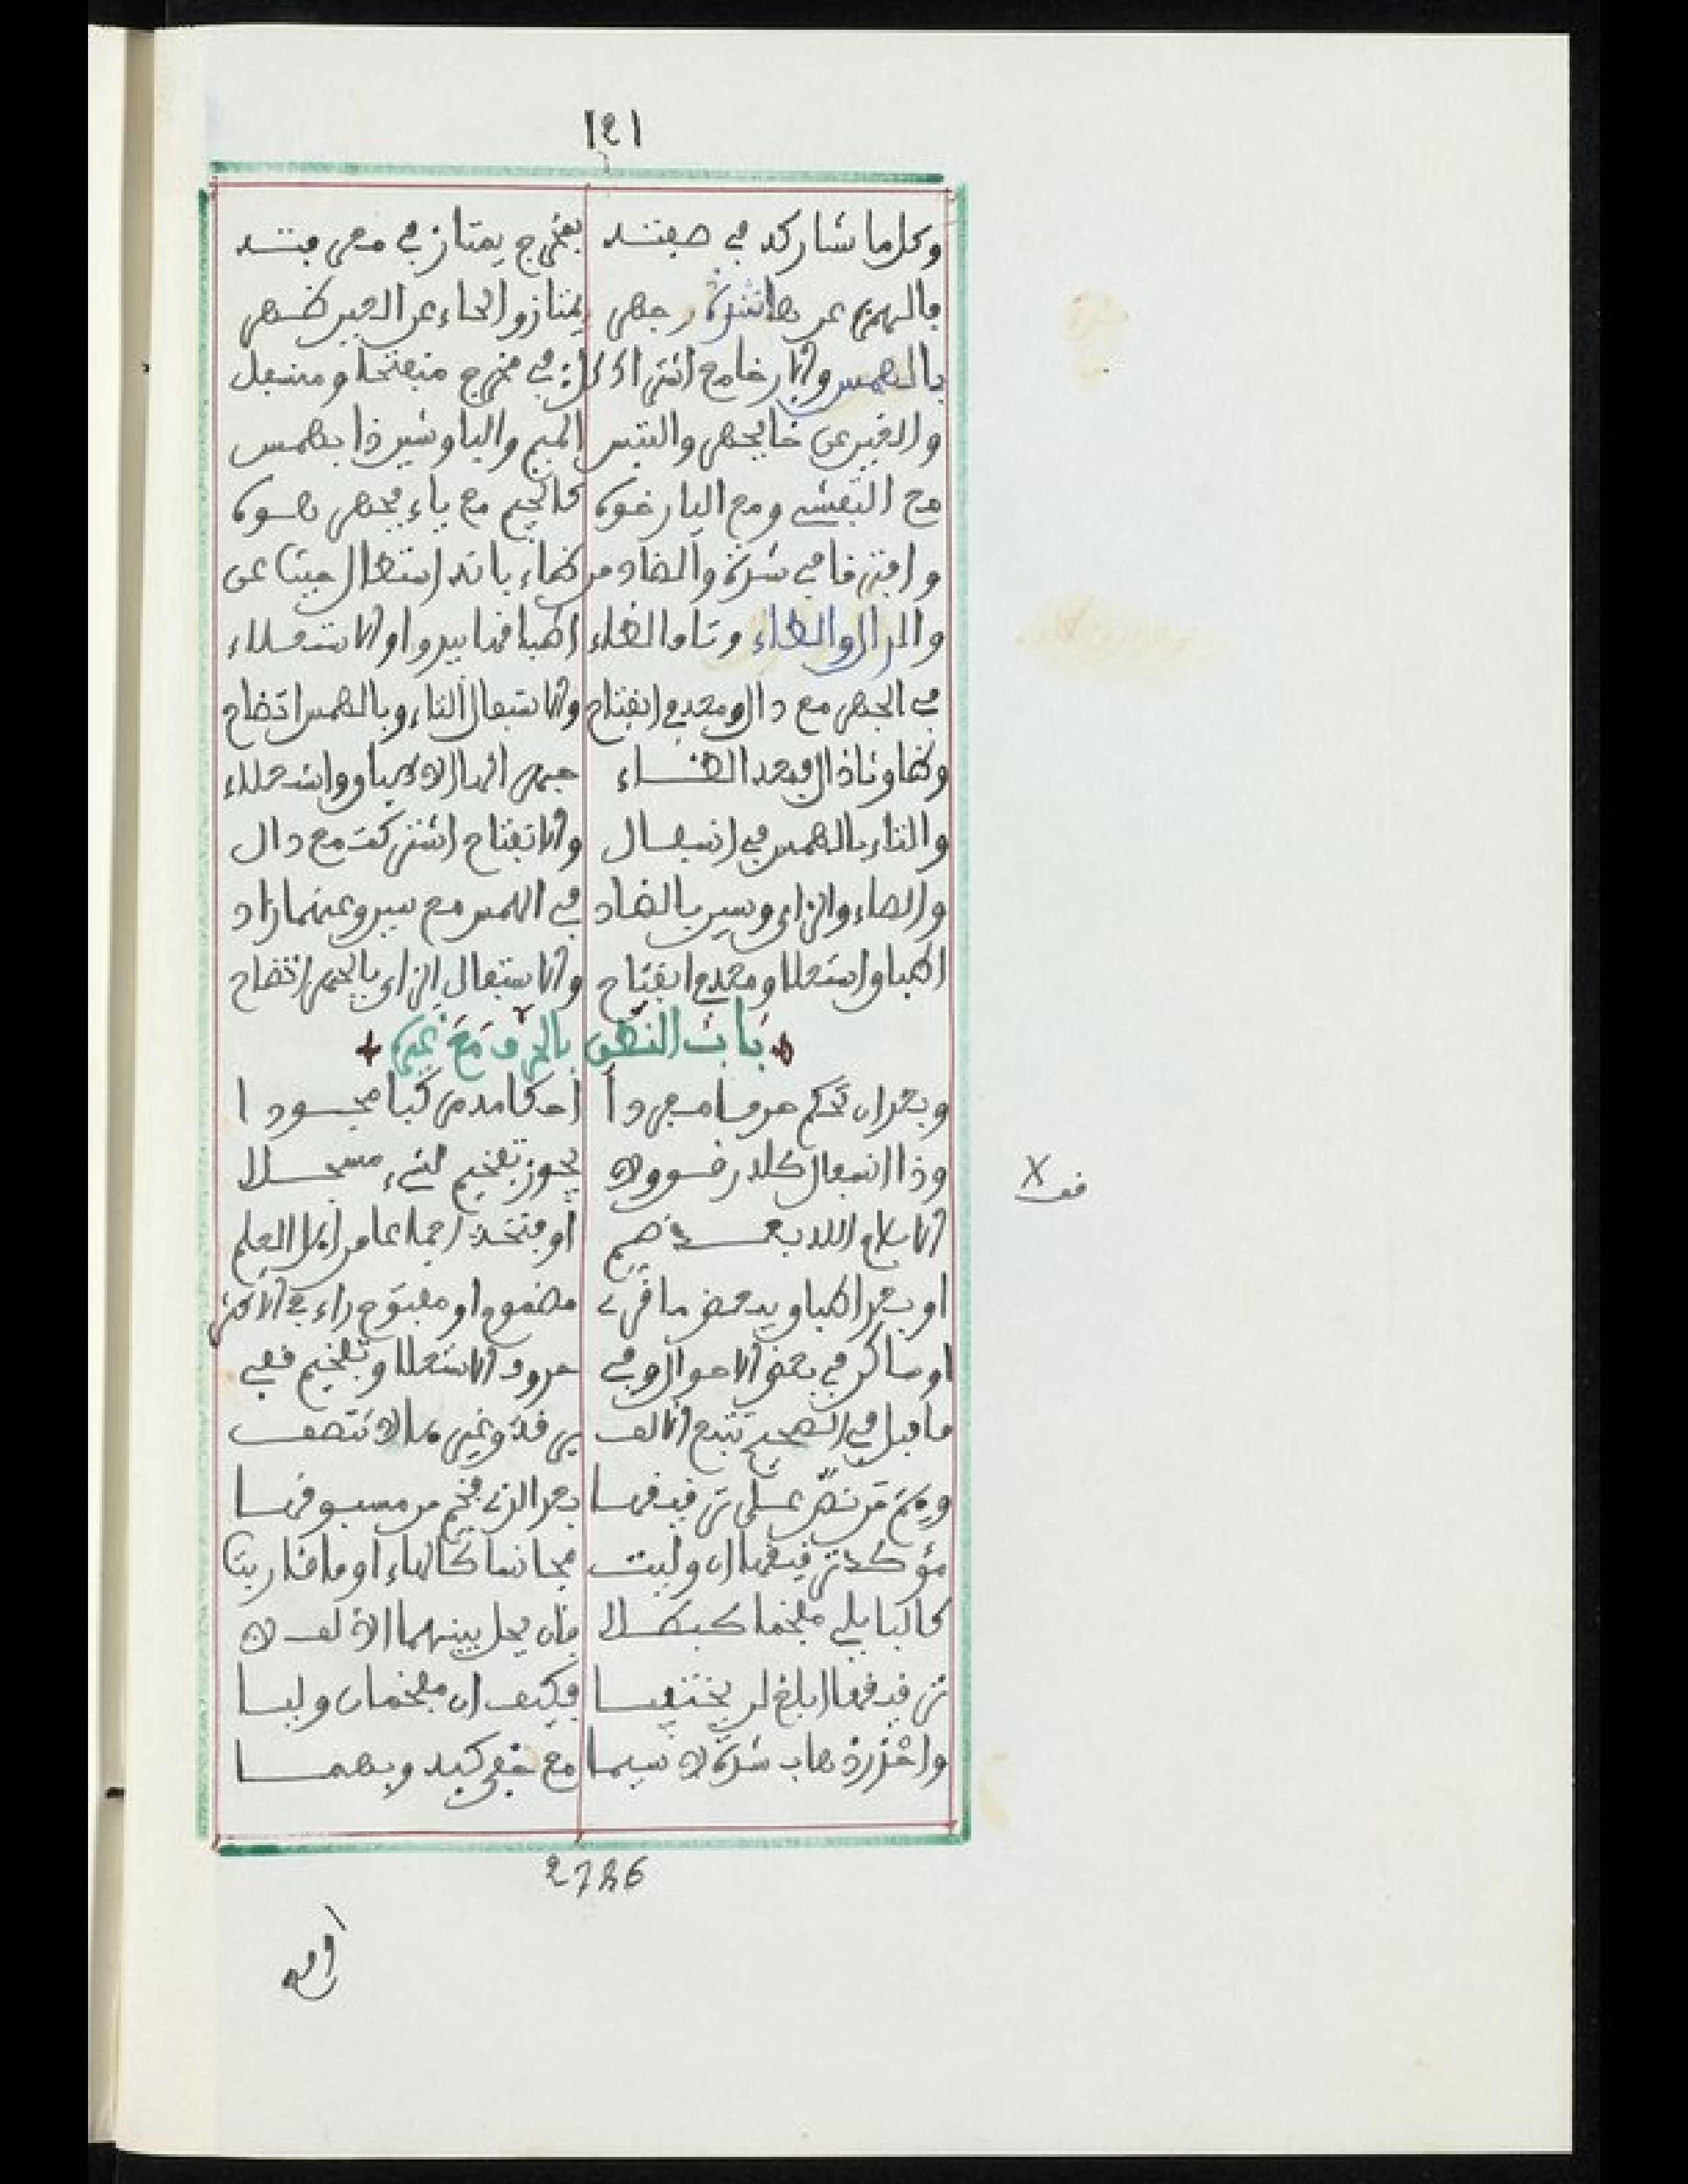 ١٤١
وكل ما شاركه في صفته بمخرج يمتاز في معرفته
فالهمز عن هاء بشدة وجهر يمتاز والحاء عن العين ظهر
بالهمس والارخا مع اشتراك كل في مخرج منفتحا ومستفل
والغين عن خا بجهر والتبس الجيم واليا وشين ذا بهمس
مع التفشي ومع اليا رخوة كالجيم مع ياء بجهر
وافترقا في شدة والضاد من ظاء بانه استطال
والدال والطاء وتا والظاء اطباقها والاستعلاء
في الجهر مع دال وبعد في انفتاح والاستفال التاء وبالهمس اتضاح
وظا وثا ذال فبعد الظاء جهر اطباق واستعلاء
والثاء بالهمس في استفال والانفتاح اشتركت مع ذال
والصاد والزاي وسين بالصاد في الهمس مع سين وعنها زاد
اطباق واستعلا وبعد في انفتاح والاستفال الزاي بالجهر اتضاح
باب النطق بالحرف مع غيره
وبعد ان تحكم حرفا مفردا احكامه مركبا مجودا
وذا استفال كله رقق ولا يجوز تفخيم لشيء مسجلا
الا بلام الله بعد ضم او فتحة اجماعا من اهل العلم
او بعد اطباق ببعض ما قري مضموم او مفتوح راء في الاكثر
او ساكن في بعض الاحوال وفي حروف الاستعلا وتفخيم قفي
فف
ما قبل في الصحيح تتبع الالف رقة وغيرها لا تتصف
ومن ثم نص على ترقيقها بعد الذي فخم من مسبوقها
مؤكد ترقيقها ان وليت مجانسا كالهاء او ما قاربت
كالبا يلي مفخما كبطلا فان يحل بينهما الالف لا
ترقيقها ابلغ لن يختفيا فكيف ان مفخمان وليا
واحذر ذهاب شدة لا سيما مع خفي كبه وبهما
2786